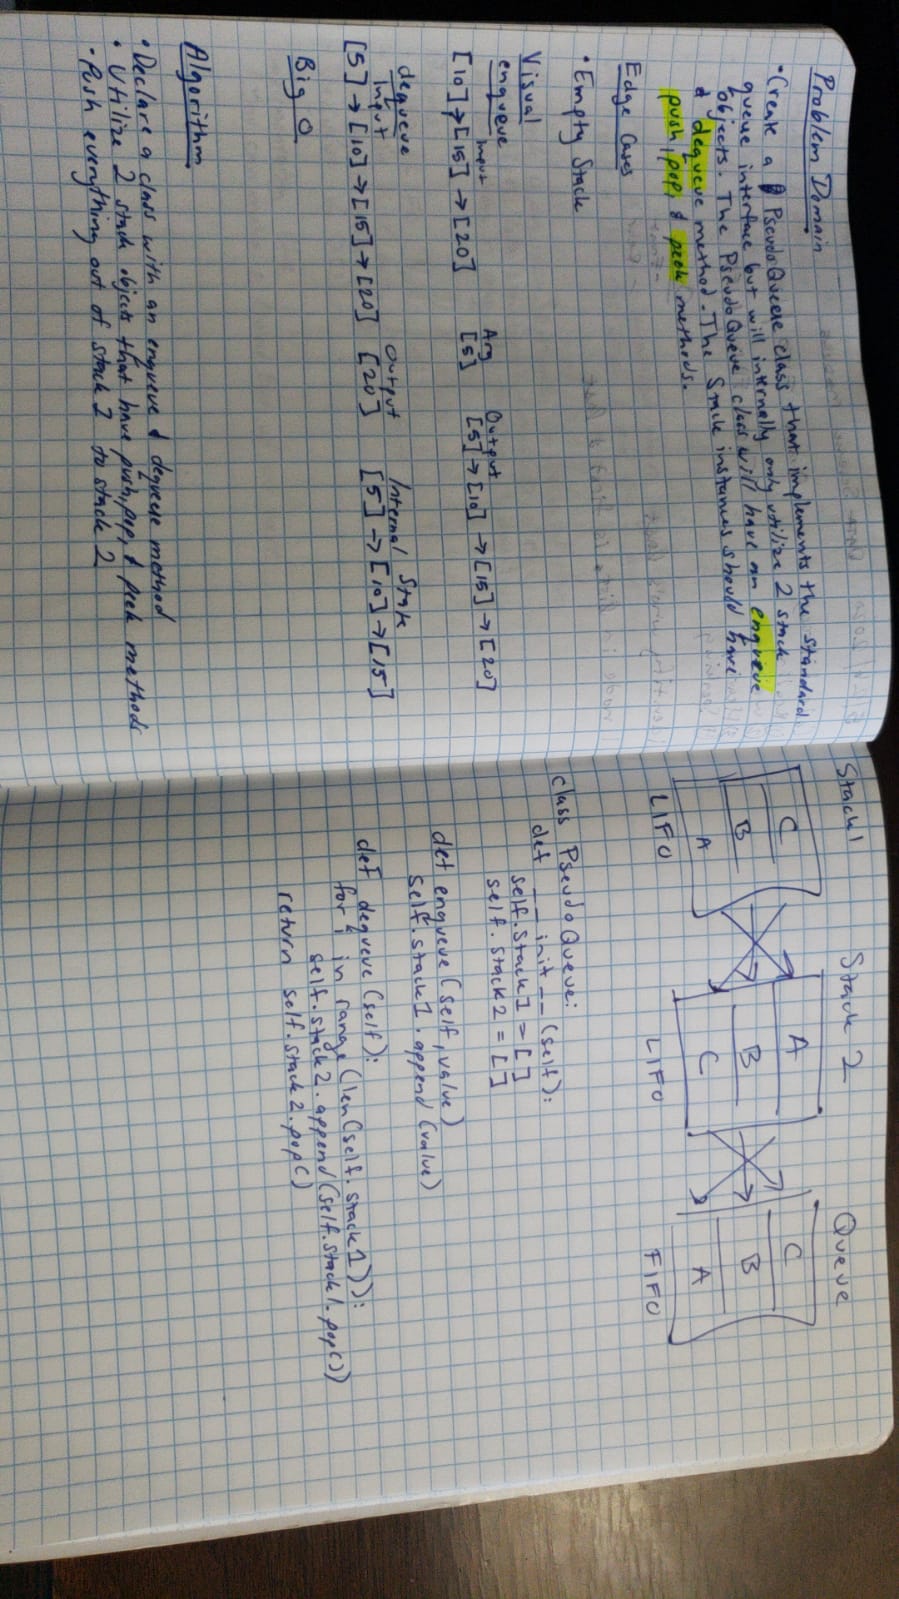 Problem Domain
• Create a PseudoQueue class that implements the standard
queue interface but will internally only utilize 2 stack
objects. The PseudoQueue class will have an enqueue
& dequeue method. The Stack instances should have
push, pop, & peek methods.
Edge Cases
• Empty Stack
Visual
enqueue
input Arg Output
[10]→[15]→[20] [5] [5]→[10]→[15]→[20]
dequeue
input Output Internal State
[5]→[10]→[15]→[20] [20] [5]→[10]→[15]
Big O
Algorithm
• Declare a class with an enqueue & dequeue method
• Utilize 2 stack objects that have push, pop, & peek methods
• Push everything out of stack 1 to stack 2
Stack1 Stack 2 Queue
C A C
B B B
A C A
LIFO LIFO FIFO
class PseudoQueue:
def __init__(self):
self.stack1 = []
self.stack2 = []
def enqueue(self, value)
self.stack1.append(value)
def dequeue(self):
for i in range(len(self.stack1)):
self.stack2.append(self.stack1.pop())
return self.stack2.pop()